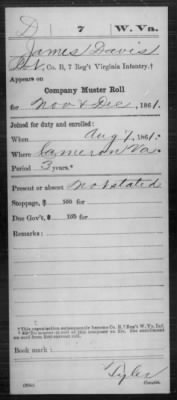 D 7 W. Va.
James Davis
Pvt, Co. B, 7 Reg't Virginia Infantry.†
Appears on
Company Muster Roll
for Nov & Dec, 1861.
Joined for duty and enrolled:
When Aug 7, 1861.
Where Cameron Va.
Period 3 years.*
Present or absent Not stated
Stoppage, $ 100 for
Due Gov't, $ 100 for
Remarks:
†This organization subsequently became Co. B, 7 Reg't W. Va. Inf.
Book mark:
Tyler
Copyist.